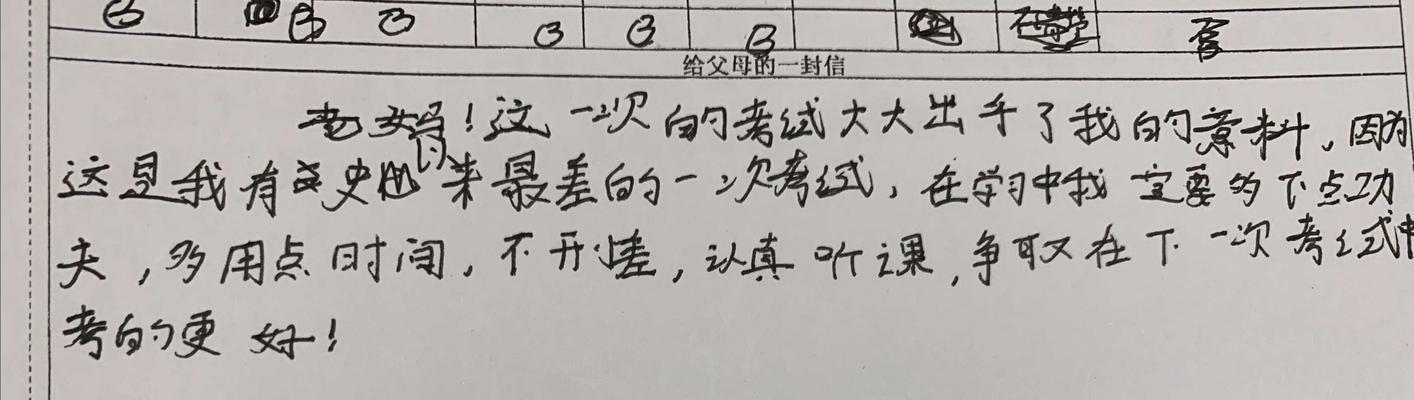 B B B B B B 否
给父母的一封信
老妈！这一次的考试大大出乎了我的意料，因为
这是我有史以来最差的一次考试，在学习中我一定要多下点功
夫，多用点时间，不开差，认真听课，争取在下一次考试中
考的更好！